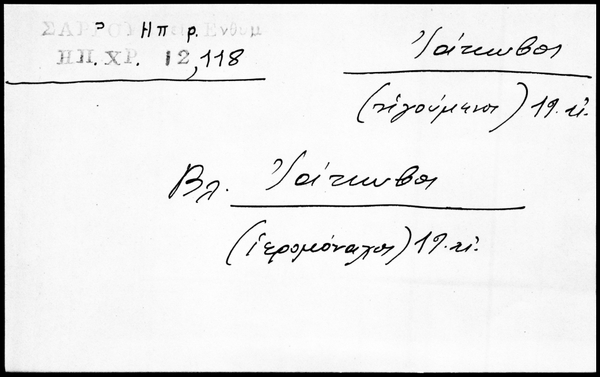 ΣΑΡΡΟΥ Ενθυμ Ηπρ.
ΗΠ. ΧΡ. 12,118
Ἰάκωβος
(ἡγούμενος) 19. αἰ.
Βλ. Ἰάκωβος
(ἱερομόναχος) 19. αἰ.